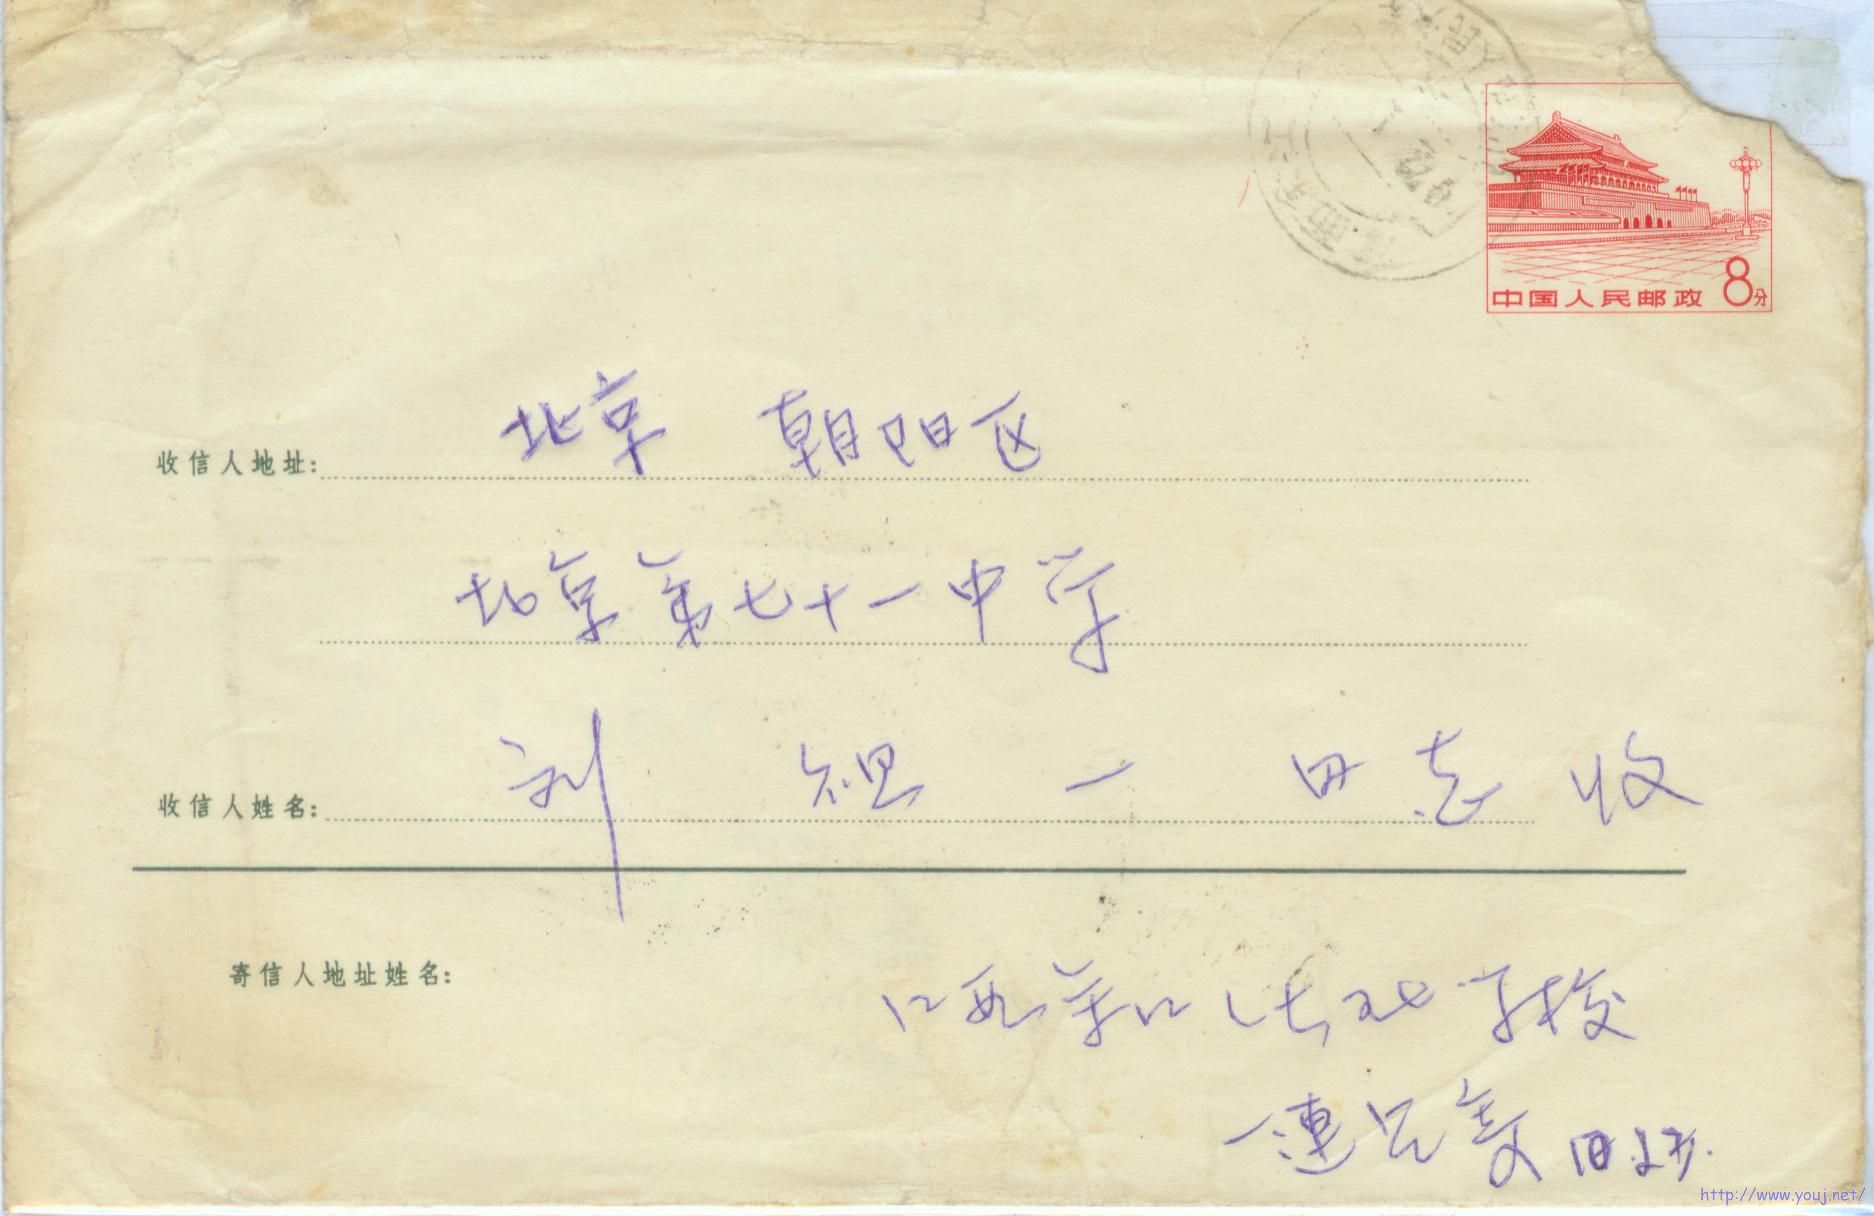 中国人民邮政 8分
收信人地址: 北京 朝阳区
北京第七十一中学
收信人姓名: 刘 祖 一 同志 收
寄信人地址姓名: 江西 五七学校
一連
http://www.youj.net/